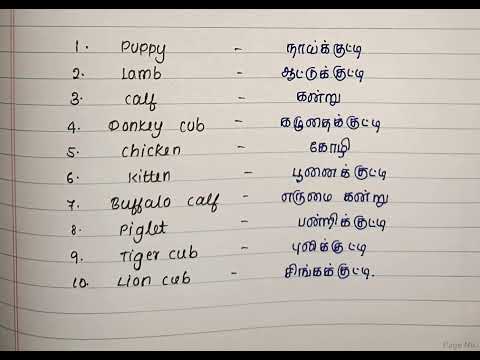 1. Puppy - நாய்க்குட்டி
2. Lamb - ஆட்டுக்குட்டி
3. calf - கன்று
4. Donkey cub - கழுதைக்குட்டி
5. chicken - கோழி
6. kitten - பூனைக்குட்டி
7. Buffalo calf - எருமை கன்று
8. Piglet - பன்றிக்குட்டி
9. Tiger cub - புலிக்குட்டி
10. Lion cub - சிங்கக்குட்டி.
Page No.